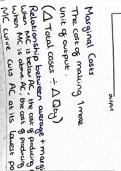 output
Marginal Costs
The cost of making 1 more
unit of output.
(Δ Total costs ÷ Δ Qty)
Relationship between average + margina
When MC is below AC, the cost of producing
When MC is above AC, the cost of producing
MC curve cuts AC at its lowest po